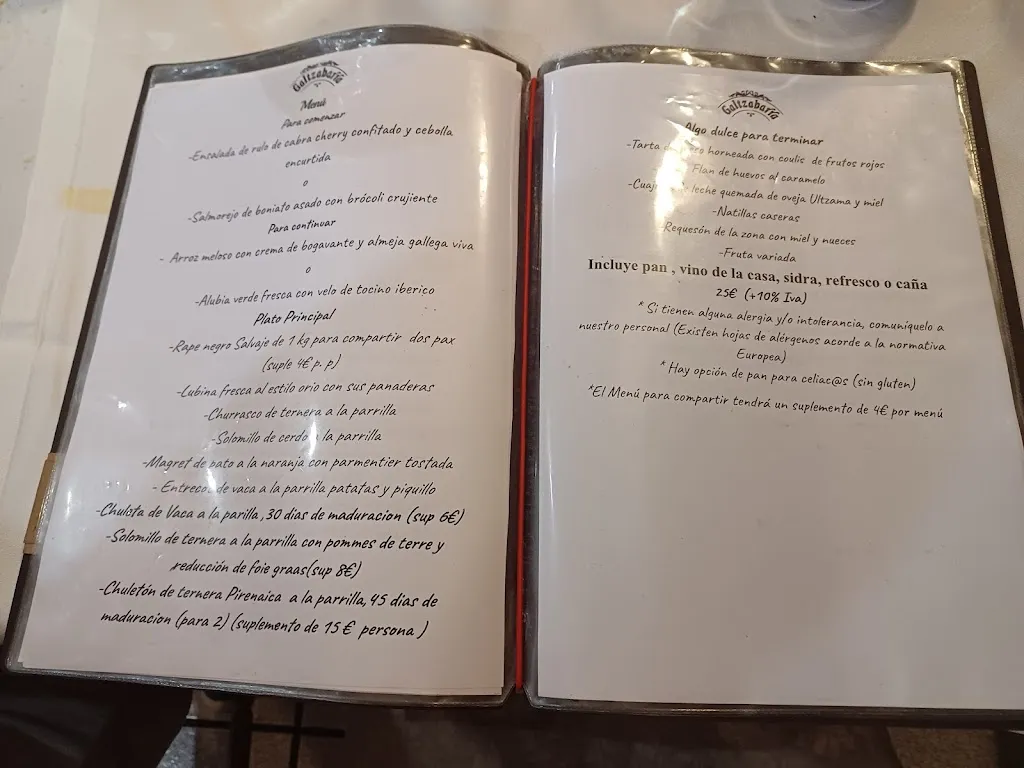 Galtzabaría
Menú
Para comenzar
-Ensalada de rulo de cabra cherry confitado y cebolla
encurtida
o
-Salmorejo de boniato asado con brócoli crujiente
Para continuar
- Arroz meloso con crema de bogavante y almeja gallega viva
o
-Alubia verde fresca con velo de tocino iberico
Plato Principal
-Rape negro Salvaje de 1 kg para compartir dos pax
(suple 4€ p. p)
-Lubina fresca al estilo orio con sus panaderas
-Churrasco de ternera a la parrilla
-Solomillo de cerdo a la parrilla
-Magret de pato a la naranja con parmentier tostada
- Entrecot de vaca a la parrilla patatas y piquillo
-Chuleta de Vaca a la parilla ,30 dias de maduracion (sup 6€)
-Solomillo de ternera a la parrilla con pommes de terre y
reducción de foie graas(sup 8€)
-Chuletón de ternera Pirenaica a la parrilla, 45 dias de
maduracion (para 2) (suplemento de 15 € persona )
Galtzabaría
Algo dulce para terminar
-Tarta horneada con coulis de frutos rojos
Flan de huevos al caramelo
leche quemada de oveja Ultzama y miel
-Natillas caseras
-Requesón de la zona con miel y nueces
-Fruta variada
Incluye pan , vino de la casa, sidra, refresco o caña
25€ (+10% Iva)
* Si tienen alguna alergia y/o intolerancia, comuníquelo a
nuestro personal (Existen hojas de alérgenos acorde a la normativa
Europea)
* Hay opción de pan para celiac@s (sin gluten)
*El Menú para compartir tendrá un suplemento de 4€ por menú